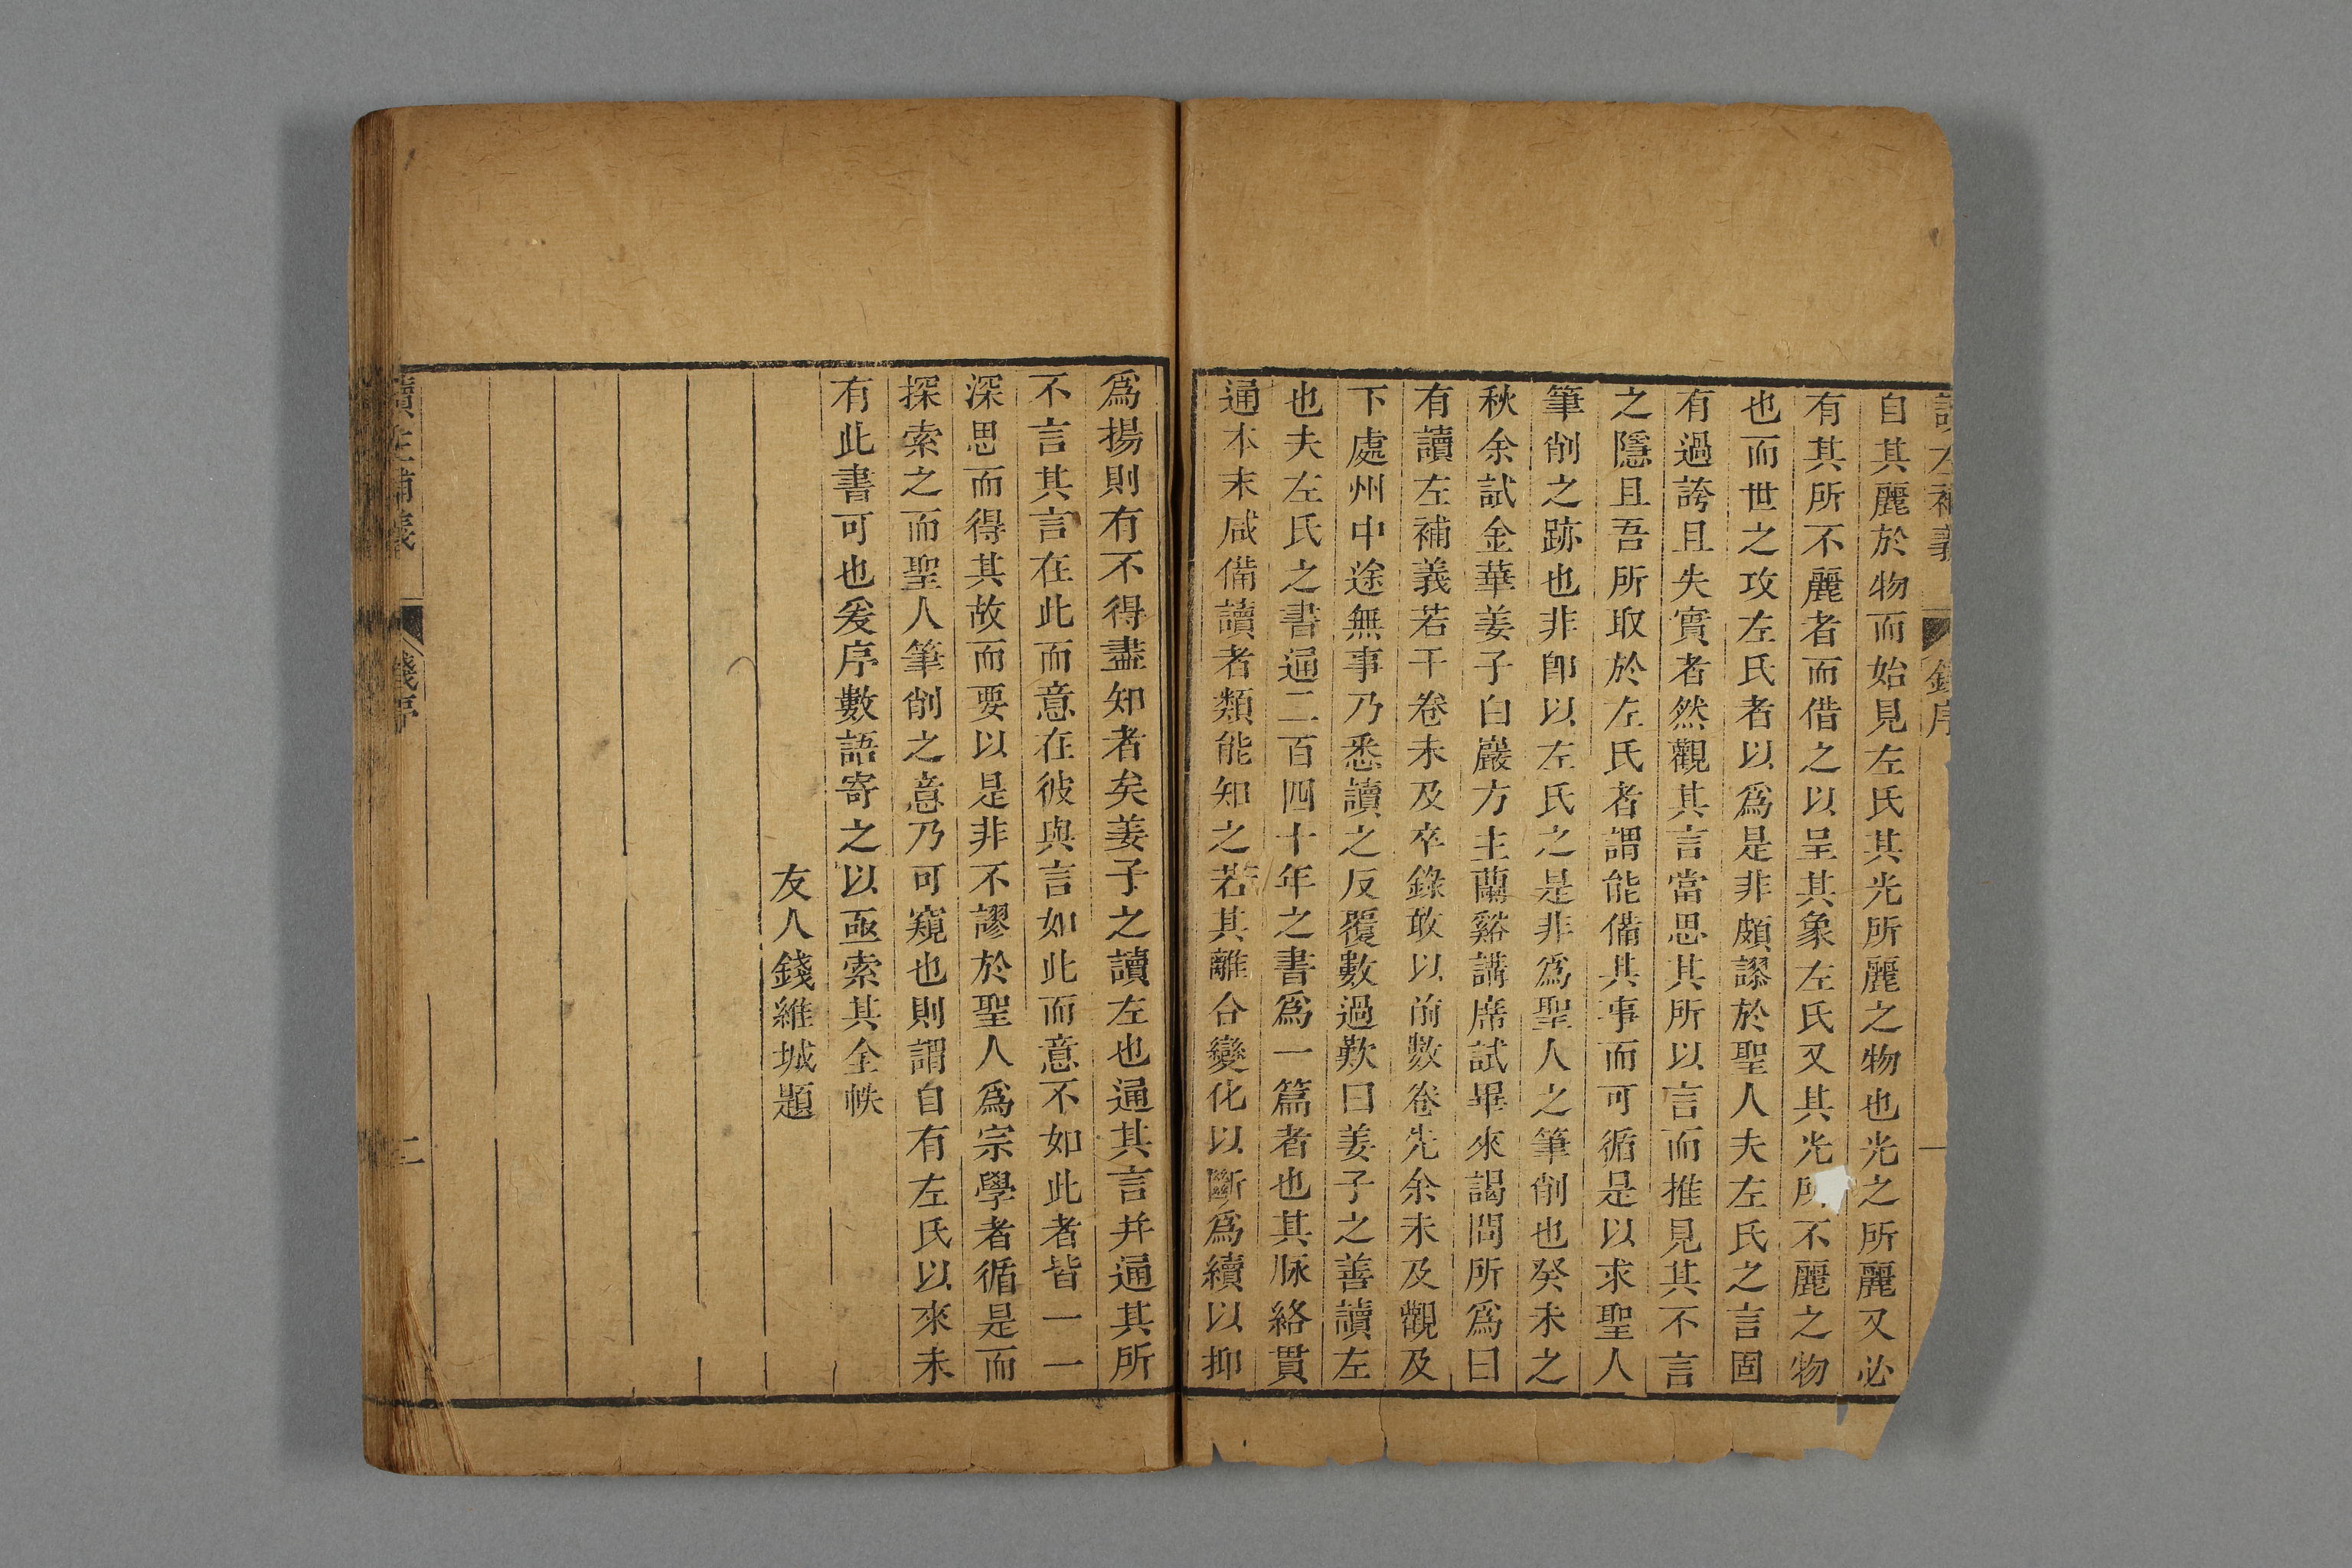 讀左補義 錢序 一
自其麗於物而始見左氏其光所麗之物也光之所麗又必
有其所不麗者而借之以呈其象左氏又其光所不麗之物
也而世之攻左氏者以爲是非頗謬於聖人夫左氏之言固
有過誇且失實者然觀其言當思其所以言而推見其不言
之隱且吾所取於左氏者謂能備其事而可循是以求聖人
筆削之跡也非卽以左氏之是非爲聖人之筆削也癸未之
秋余試金華姜子白巖方主蘭谿講席試畢來謁問所爲曰
有讀左補義若干卷未及卒錄敢以前數卷先余未及觀及
下處州中途無事乃悉讀之反覆數過歎曰姜子之善讀左
也夫左氏之書通二百四十年之書爲一篇者也其脉絡貫
通本末咸備讀者類能知之若其離合變化以斷爲續以抑
爲揚則有不得盡知者矣姜子之讀左也通其言并通其所
不言其言在此而意在彼與言如此而意不如此者皆一一
深思而得其故而要以是非不謬於聖人爲宗學者循是而
探索之而聖人筆削之意乃可窺也則謂自有左氏以來未
有此書可也爰序數語寄之以亟索其全帙
友人錢維城題
讀左補義 錢序 二